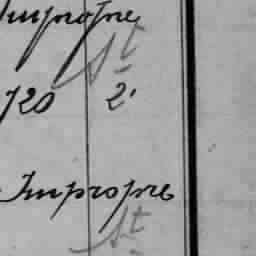 Impropre
St
720 2'
Impropre
St